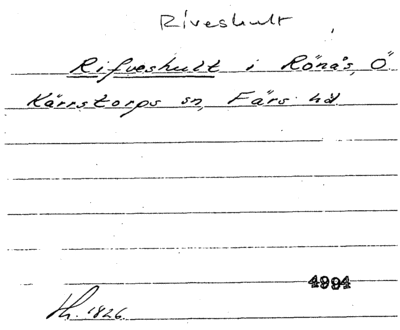 Riveshult
Rifveshult i Rönås, Ö
Kärrstorps sn, Färs hd
4994
Th. 1826.